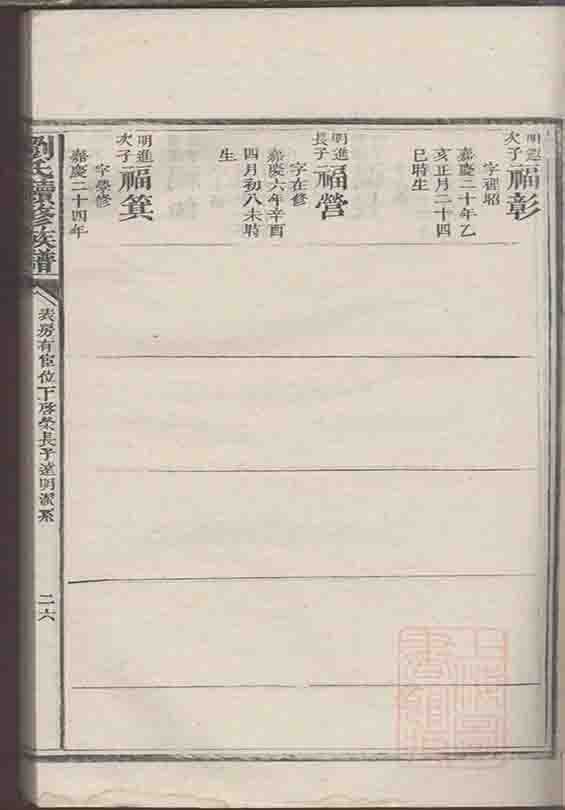 明選
次子
福彰
字程昭
嘉慶二十年乙
亥正月二十四
巳時生
明進
長子
福營
字在修
嘉慶六年辛酉
四月初八未時
生
明進
次子
福箕
字學修
嘉慶二十四年
劉氏續修族譜
表房有宦位下啓榮長子達明潔系
二六